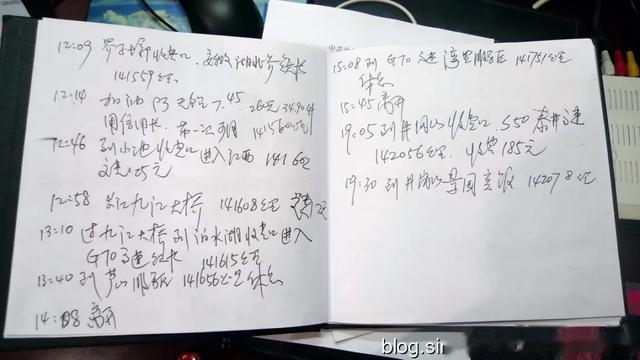 12:09 界子墩收费口、安徽湖北分
141559公里.
12:14 加油 93 7.45 260元 34.90升
用信用卡、第一次 141560公里
12:46 到小池收费口进入江西 141602
交费25元
12:58 长江九江大桥 141608公里
13:10 过九江大桥到泊水湖收费口进入
G70高速 141615公里
13:40 到庐山服务区 141656公里 休息
14:08 离开
15:08 到 G70 高速 湾里服务区 141751公里
休息
15:45 离开
19:05 到井冈山收费口 S50 泰井高速
142056公里. 收费185元
19:30 到井冈山 142078公里
blog.sir